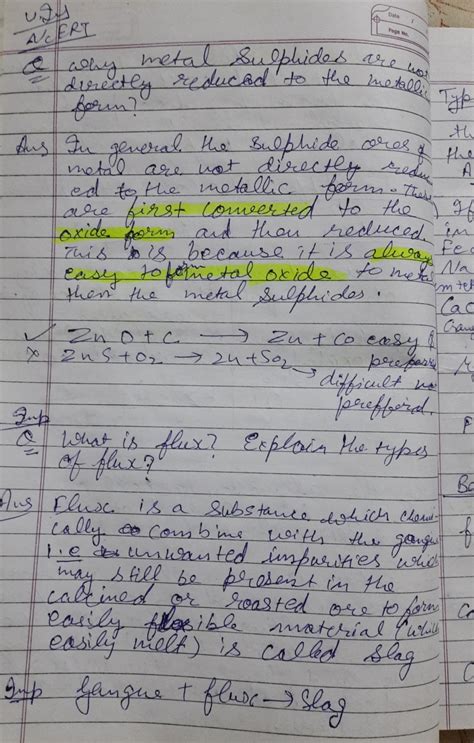 V. Ims
A/c ERT
Date /
Page No.
Q Why metal sulphides are not
directly reduced to the metallic
form?
Ans In general the sulphide ores of
metal are not directly reduc
ed to the metallic form. There
are first converted to the
oxide form and then reduced.
This is because it is always
easy to form metal oxide to metal
then the metal sulphides.
✓ ZnO + C → Zn + CO easy &
× ZnS + O2 → Zn + SO2
difficult not
prefferd.
Imp
Q What is flux? Explain the types
of flux?
Ans Flux is a substance which chemi
cally combine with the gangue
i.e unwanted impurities which
may still be present in the
calcined or roasted ore to form
easily fusible material (which
easily melt) is called slag
Imp Gangue + flux → Slag
Typ
th
the
A